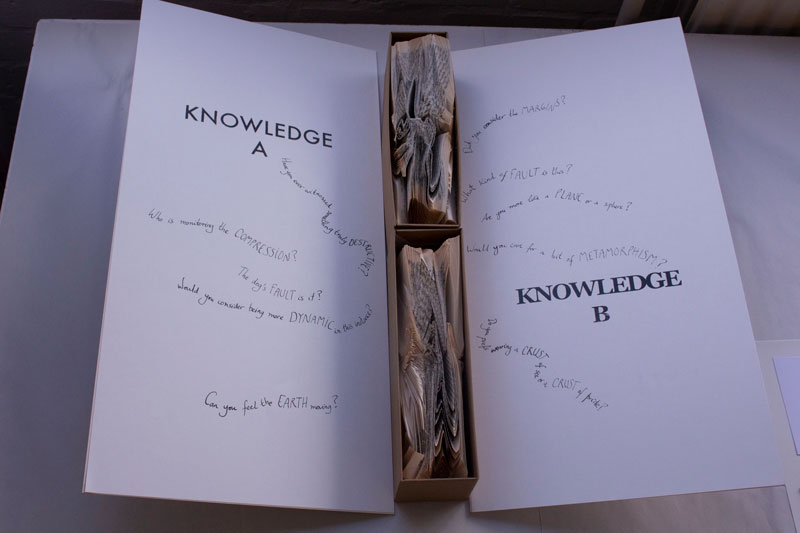 KNOWLEDGE
A
Have you ever witnessed
anything truly DESTRUCTIVE?
Who is monitoring the COMPRESSION?
The dog's FAULT is it?
Would you consider being more DYNAMIC in this instance?
Can you feel the EARTH moving?
Did you consider the MARGINS?
What kind of FAULT is this?
Are you more like a PLANE or a sphere?
Would you care for a bit of METAMORPHISM?
KNOWLEDGE
B
a CRUST
a CRUST of